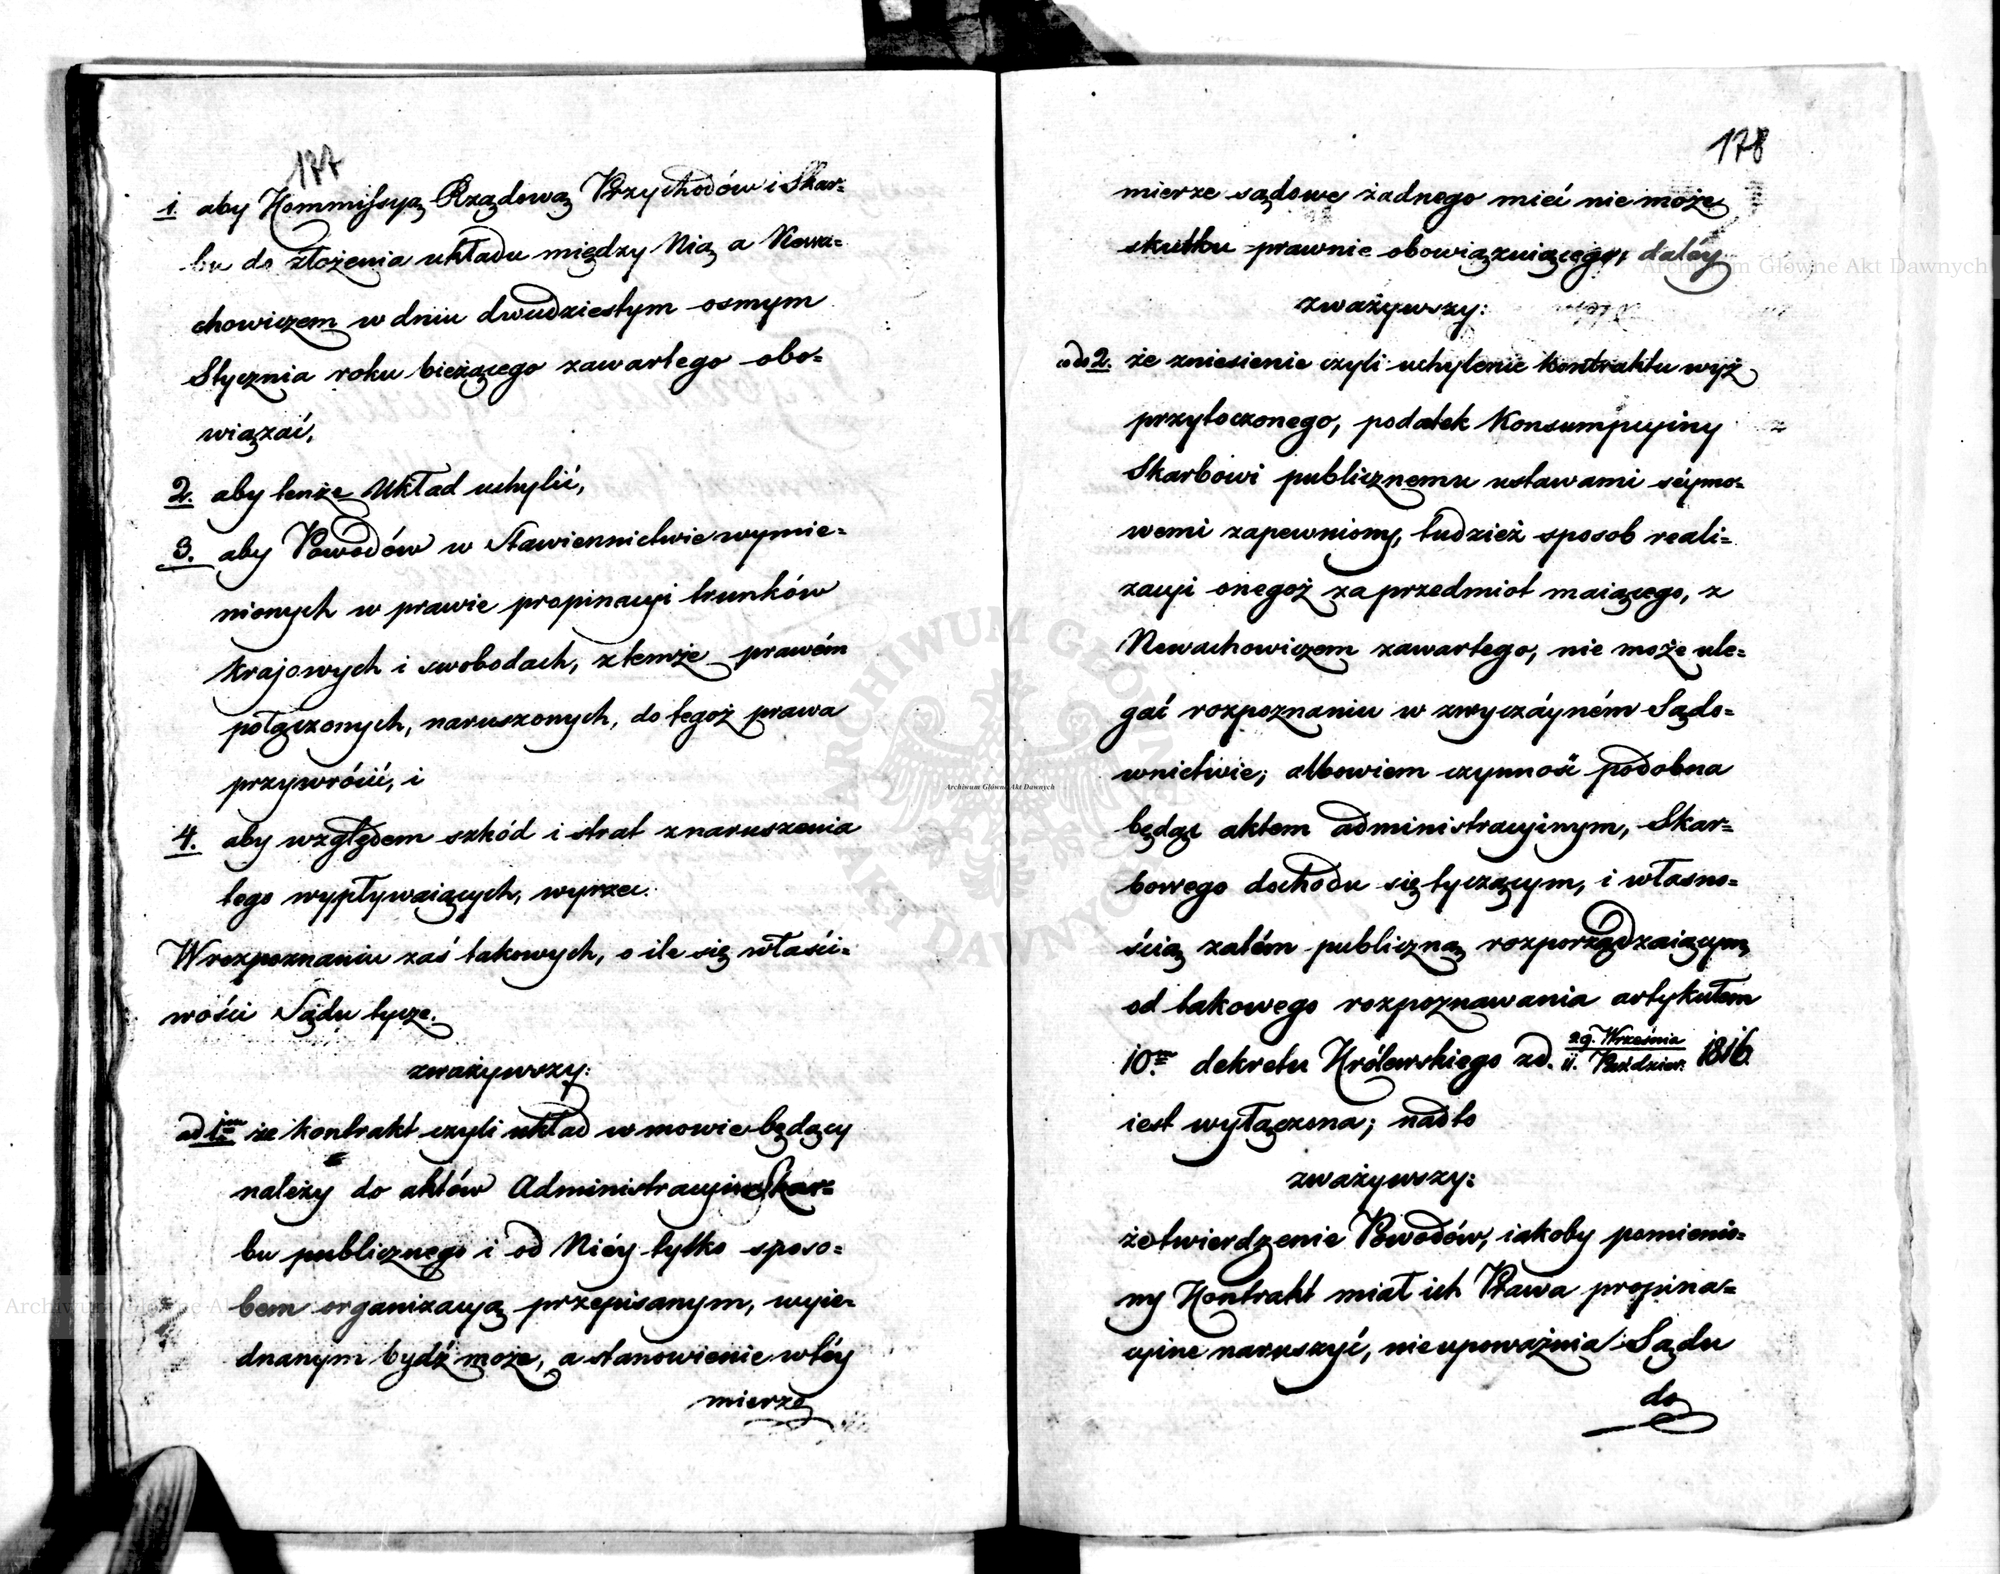 177
1. aby Kommissyą Rządową Przychodów i Skar=
bu do złożenia układu między Nią a Newa=
chowiczem w dniu dwudziestym osmym
Stycznia roku bieżącego zawartego obo=
wiązać,
2. aby tenże Układ uchylić,
3. aby Powodów w Stawiennictwie wymie=
nionych w prawie propinacyi trunków
krajowych i swobodach, z temże prawém
połączonych, naruszonych, do tegoż prawa
przywrócić, i
4. aby względem szkód i strat z naruszenia
tego wypływaiących, wyrzec.
W rozpoznaniu zaś takowych, o ile się właści=
wości Sądu tycze.
zważywszy:
ad 1m że kontrakt czyli układ w mowie będący
należy do aktów Administracyi Skar=
bu publicznego i od Niéy tylko sposo=
bem organizacyą przepisanym, wyie=
dnanym bydź może, a stanowienie w téy
mierze
178
mierze sądowe żadnego mieć nie może
skutku prawnie obowiązuiącego, daléy
zważywszy:
co do 2. że zniesienie czyli uchylenie kontraktu wyż
przytoczonego, podatek Konsumpcyiny
Skarbowi publicznemu ustawami séymo=
wemi zapewniony, tudzież sposob reali=
zacyi onegoż za przedmiot maiącego, z
Newachowiczem zawartego, nie może ule=
gać rozpoznaniu w zwyczáyném Sądo=
wnictwie; albowiem czynność podobna
będąc aktem administracyinym, Skar=
bowego dochodu się tyczącym, i własno=
ścią zatém publiczną rozporządzaiącym,
od takowego rozpoznawania artykułem
10m dekretu Królewskiego z d. 29. Września / 11. Paździer. 1816.
iest wyłączona; nadto
zważywszy:
że twierdzenie Powodów, iakoby pomienio=
ny Kontrakt miał ich Prawa propina=
cyine naruszyć, nie upoważnia Sądu
do
Archiwum Główne Akt Dawnych